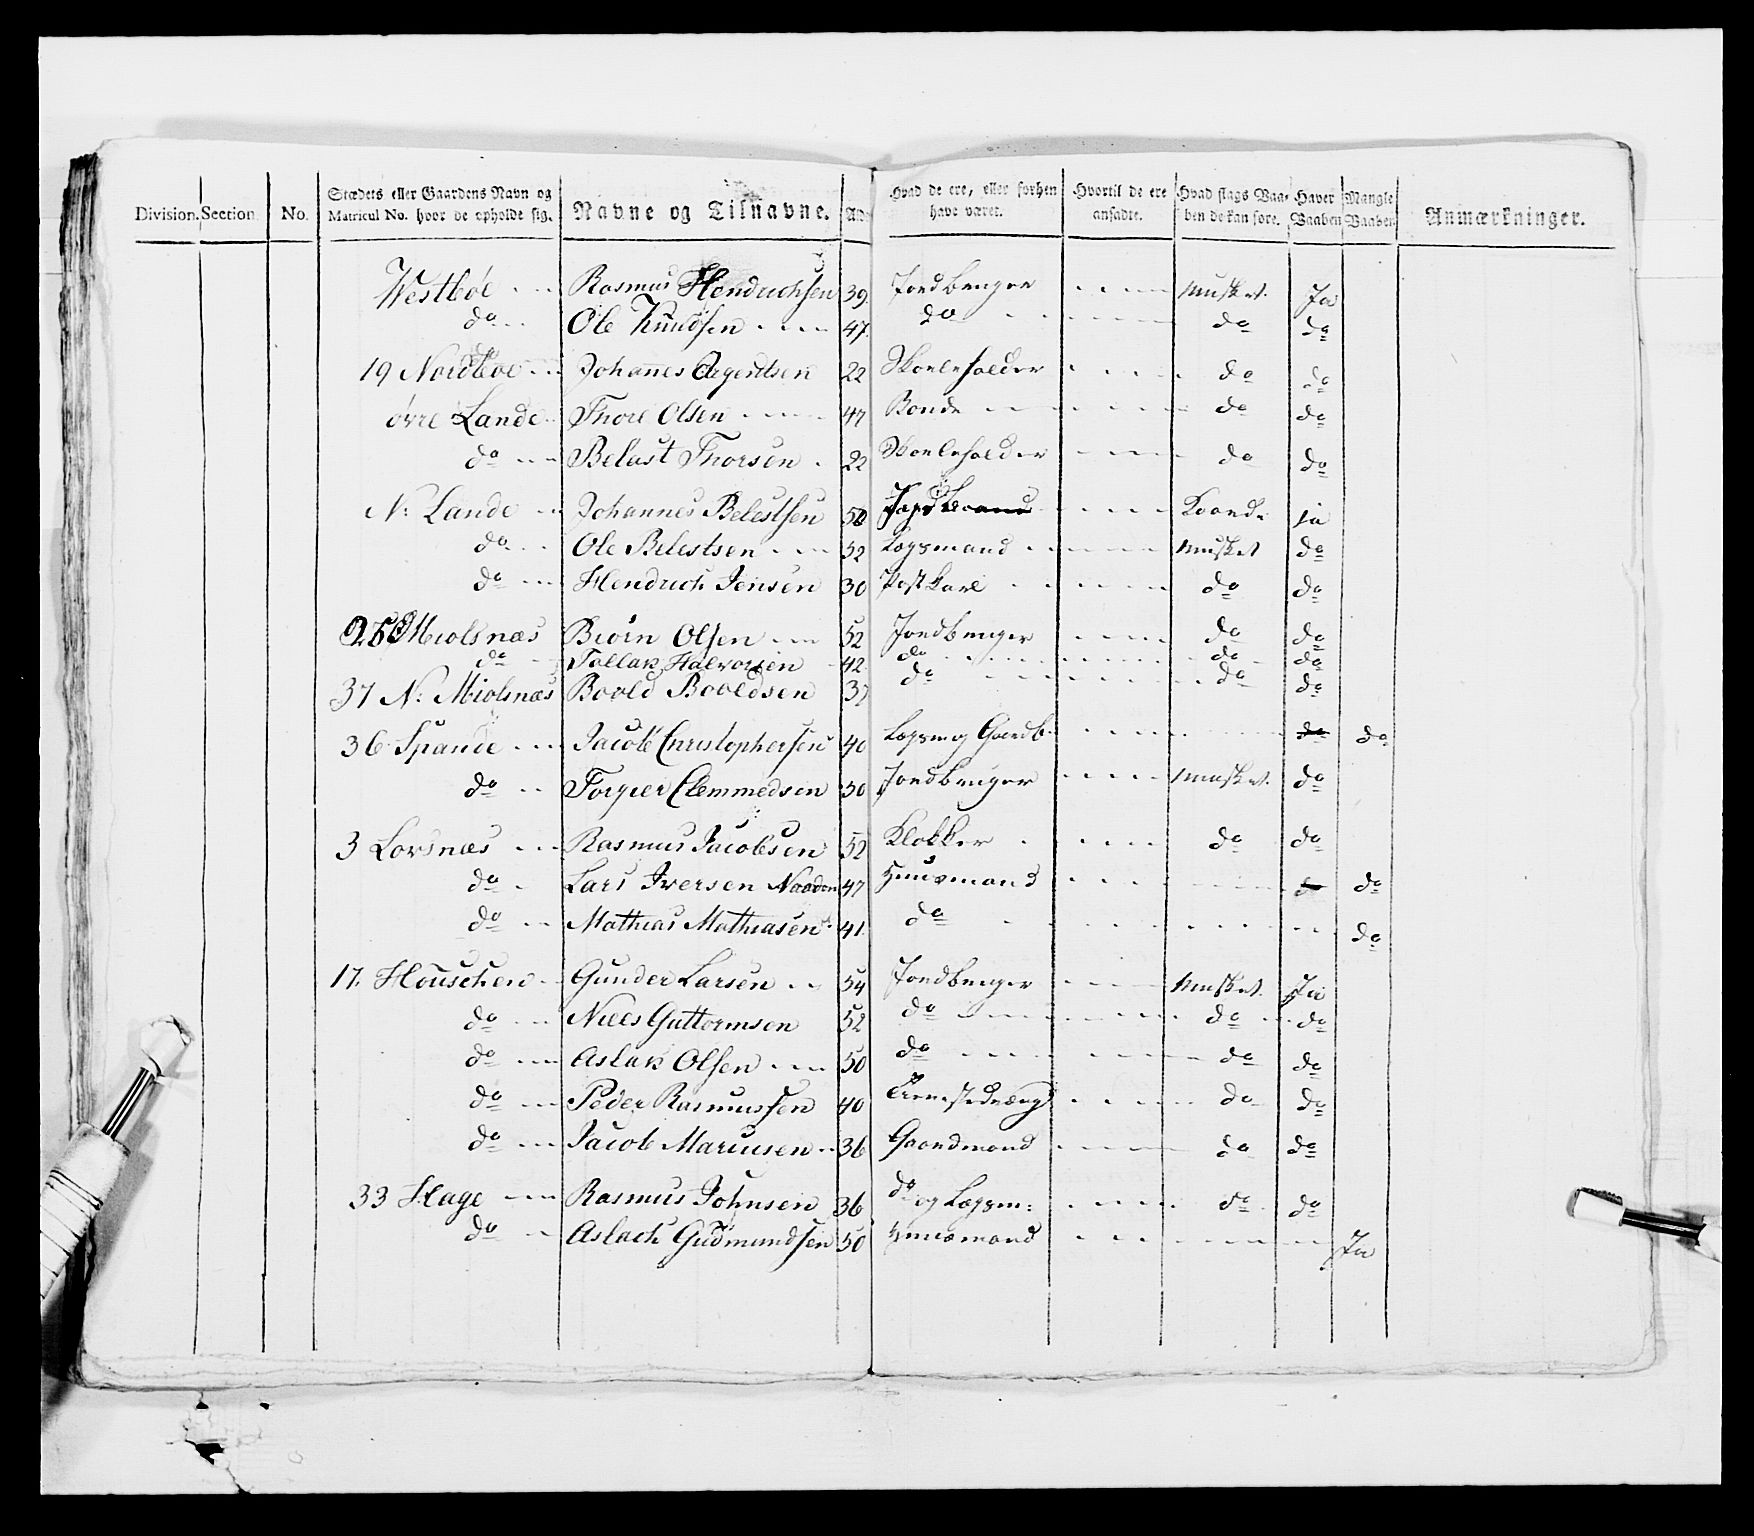 Division. Section. No. Stædets eller Gaardens Navn og Matricul No. hvor de opholde sig. Navne og Tilnavne. Ald. Hvad de ere, eller forhen have været. Hvortil de ere ansadte. Hvad slags Vaaben de kan føre. Haver Vaaben Mangle Vaaben Anmærkninger.
Westbøe Rasmus Hendrichsen 39. Jordbruger Musket. Ja
do Ole Knudsen 47. do do do
19 Nordbøe Johannes Aegentsen 22 Skoleholder do do
øvre Lande Thore Olsen 47 Bonde do do
do Belast Thorsen 22 Skoleholder do do
N: Lande Johannes Belestsen 50 ja
do Ole Belestsen 52 Logsmand Musket do
do Hendrich Jensen 30 Postkarl do do
Miolsnæs Biørn Olsen 52 Jordbruger do do
do Tallak Halvorsen 42. do do do
37 N: Miolsnæs Boold Booldsen 37 do do do
36 Spande Jacob Christophersen 40 Logsm og Gaardb. do do
do Torgier Clemmedsen 50 Jordbruger Musket. do
3 Lorsnæs Rasmus Jacobsen 52 Klokker do do
do Lars Iversen 47 Huusmand do do
do Mathias Mathiasen 41. do do
17. Houschen Gunder Larsen 54 Jordbruger Musket. Ja
do Niels Guttormsen 52 do do do
do Aslak Olsen 50 do do do
do Peder Rasmussen 40 do do
do Jacob Mariusen 36 Gaardmand do do
33 Hage Rasmus Johnsen 36 do og Logsm: do do
do Aslach Gudmundsen 50 Huusmand Ja